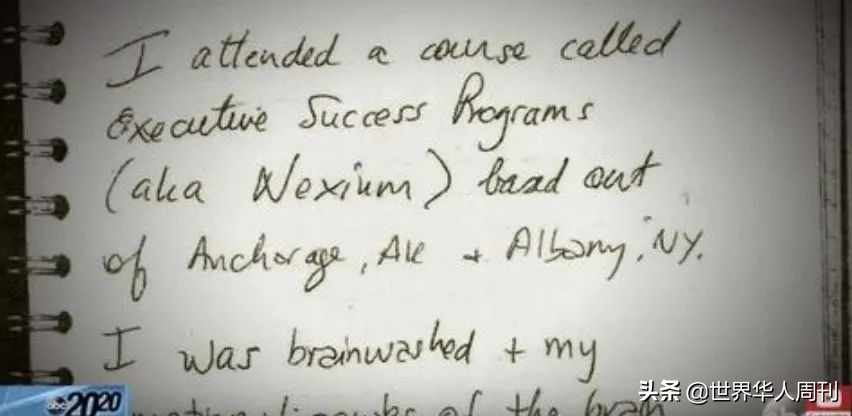 I attended a course called
Executive Success Programs
(aka Nexium) based out
of Anchorage, AK + Albany, NY.
I was brainwashed + my
of the brain
abc 2020
头条 @世界华人周刊